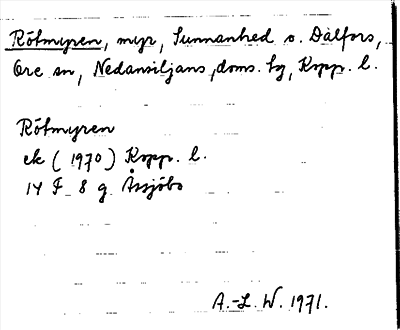 Rötmyren, myr, Sunnanhed o. Dalfors,
Ore sn, Nedansiljans doms. hg, Kopp. l.
Rötmyren
ek (1970) Kopp. l.
14 F 8 g Åssjöbo
A.-L. W. 1971.